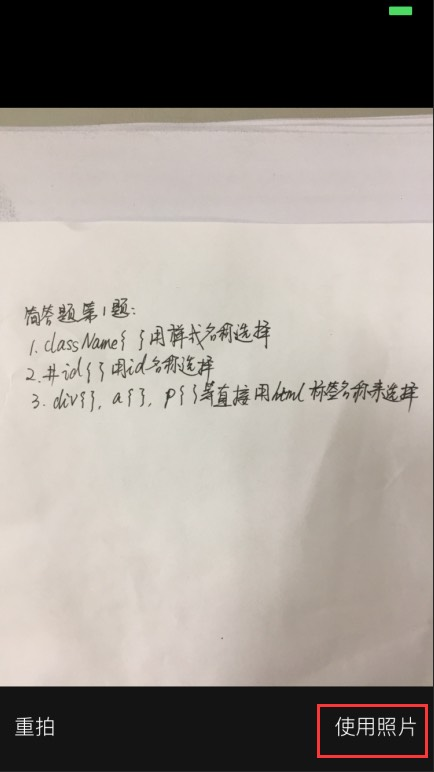 简答题第1题:
1. className{ }用样式名称选择
2. #id{ }用id名称选择
3. div{ }, a{ }, p{ }等直接用html标签名称来选择
重拍
使用照片